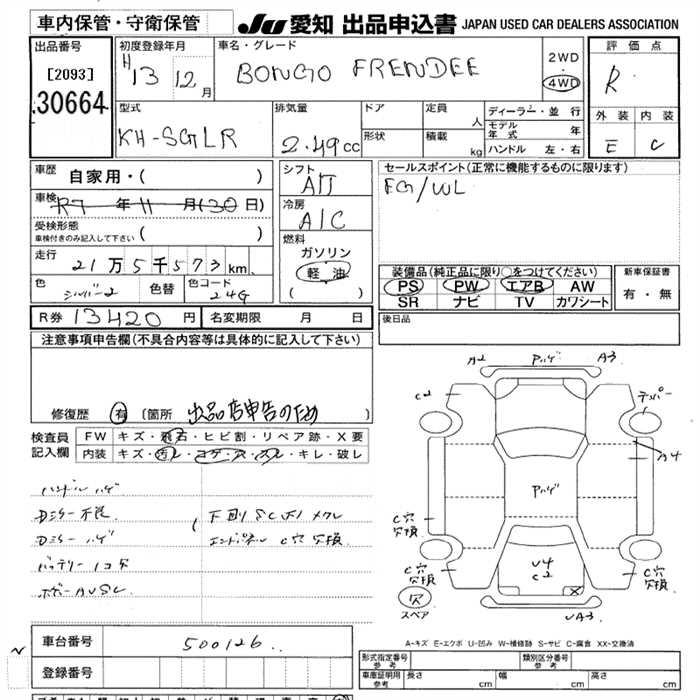 車内保管・守衛保管
JU 愛知 出品申込書 JAPAN USED CAR DEALERS ASSOCIATION
出品番号
[2093]
30664
初度登録年月
H 13 12月
車名・グレード
BONGO FRENDEE
2WD
・
4WD
評価点
R
外装 内装
E C
型式
KH-SGLR
排気量
2.49cc
ドア
形状
定員 人
積載 kg
ディーラー・並行
モデル年式 年
ハンドル 左・右
車歴
自家用・( )
車検 R7年11月(30日)
受検形態
車検付きのみ記入して下さい ( )
走行 21万5千573km
色 シルバー2 色替 色コード 24G
シフト
A/T
冷房
A/C
燃料
ガソリン
軽油
( )
セールスポイント(正常に機能するものに限ります)
EG/WL
装備品(純正品に限り○をつけてください)
PS PW エアB AW
SR ナビ TV カワシート
新車保証書
有・無
R券 13420円 名変期限 月 日
後日品
注意事項申告欄(不具合内容等は具体的に記入して下さい)
修復歴 有 [箇所 出品店申告のため ]
検査員記入欄
FW キズ・飛石・ヒビ割・リペア跡・X要
内装 キズ・汚レ・コゲ・穴・スレ・キレ・破レ
ハンドル ハゲ
Dミラー不良
Dミラー ハゲ
バッテリー 1コ欠
ボデーAUSC
下回りSC
エンドパネル C穴 欠損
A2 Pハゲ A3
C2
テンパー
A4
Pハゲ
C穴
欠損
C穴
欠損
C穴
欠損
U4
C2
X
欠
スペア
UA3
A-キズ E-エクボ U-凹み W-補修跡 S-サビ C-腐食 XX-交換済
車台番号 500126
登録番号
形式指定番号
参考
類別区分番号
参考
車庫証明用
参考
長さ cm 幅 cm 高さ cm